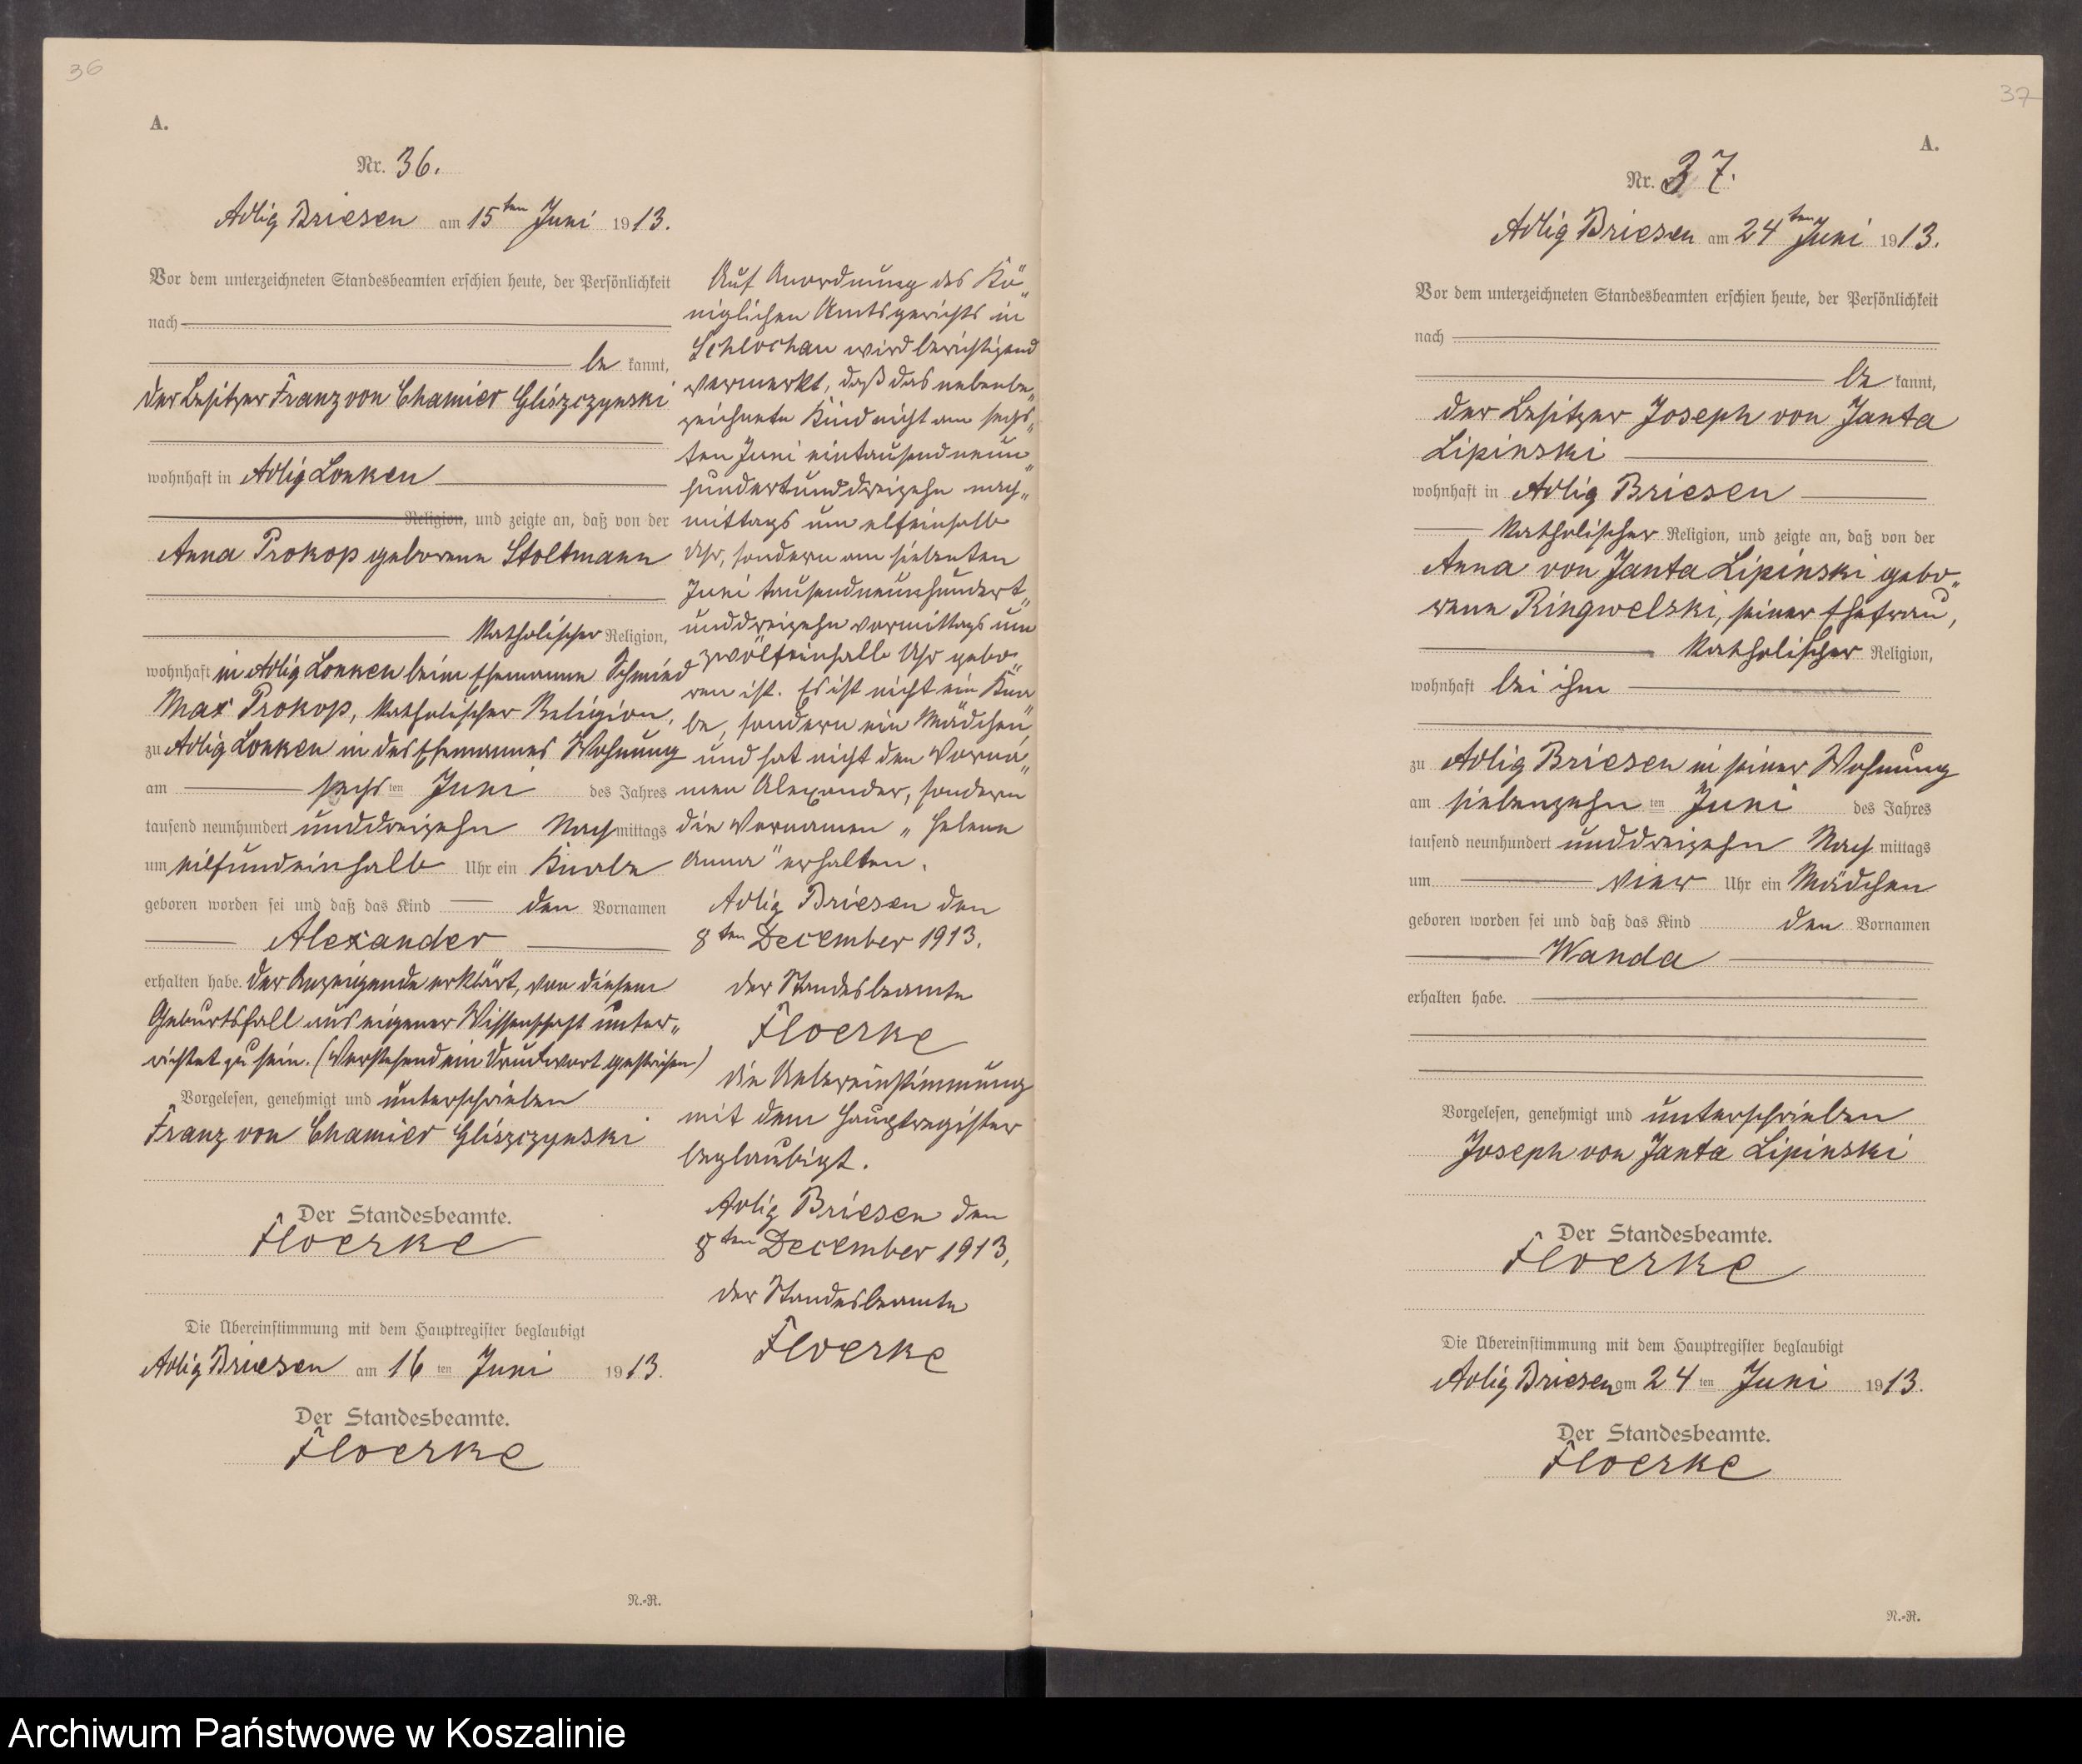 36
A.
Nr. 36.
Adlig Briesen am 15ten Juni 1913.
Vor dem unterzeichneten Standesbeamten erschien heute, der Persönlichkeit
nach
be kannt,
der Besitzer Franz von Chamier Gliszczynski
wohnhaft in Adlig Lonken
Religion, und zeigte an, daß von der
Anna Prokop geborene Stoltmann
katholischer Religion,
wohnhaft in Adlig Lonken beim Ehemanne Schmied
Max Prokop, katholischer Religion,
zu Adlig Lonken in des Ehemannes Wohnung
am sechs ten Juni des Jahres
tausend neunhundert unddreizehn Nachmittags
um eilfundeinhalb Uhr ein Knabe
geboren worden sei und daß das Kind den Vornamen
Alexander
erhalten habe. Der Anzeigende erklärt, von diesem
Geburtsfall aus eigener Wissenschaft unter„
richtet zu sein. (Vorstehend ein Druckwort gestrichen)
Vorgelesen, genehmigt und unterschrieben
Franz von Chamier Gliszczynski
Der Standesbeamte.
Floerke
Die Übereinstimmung mit dem Hauptregister beglaubigt
Adlig Briesen am 16 ten Juni 1913.
Der Standesbeamte.
Floerke
N.-R.
Auf Anordnung des Kö„
niglichen Amtsgerichts in
Schlochau wird berichtigend
vermerkt, daß das nebenbe„
zeichnete Kind nicht am sechs„
ten Juni eintausendneun„
hundertunddreizehn nach„
mittags um elfeinhalb
Uhr, sondern am siebenten
Juni tausendneunhundert„
unddreizehn vormittags um
zwölfeinhalb Uhr gebo„
ren ist. Es ist nicht ein Kna„
be, sondern ein Mädchen,
und hat nicht den Vorna„
men Alexander, sondern
die Vornamen „Helene
Anna" erhalten.
Adlig Briesen den
8ten December 1913.
Der Standesbeamte
Floerke
Die Uebereinstimmung
mit dem Hauptregister
beglaubigt.
Adlig Briesen den
8ten December 1913.
Der Standesbeamte
Floerke
37
A.
Nr. 37.
Adlig Briesen am 24ten Juni 1913.
Vor dem unterzeichneten Standesbeamten erschien heute, der Persönlichkeit
nach
be kannt,
der Besitzer Joseph von Janta
Lipinski
wohnhaft in Adlig Briesen
katholischer Religion, und zeigte an, daß von der
Anna von Janta Lipinski gebo„
rene Ringwelski, seiner Ehefrau,
katholischer Religion,
wohnhaft bei ihm
zu Adlig Briesen in seiner Wohnung
am siebenzehn ten Juni des Jahres
tausend neunhundert unddreizehn Nach mittags
um vier Uhr ein Mädchen
geboren worden sei und daß das Kind den Vornamen
Wanda
erhalten habe.
Vorgelesen, genehmigt und unterschrieben
Joseph von Janta Lipinski
Der Standesbeamte.
Floerke
Die Übereinstimmung mit dem Hauptregister beglaubigt
Adlig Briesen am 24 ten Juni 1913.
Der Standesbeamte.
Floerke
N.-R.
Archiwum Państwowe w Koszalinie